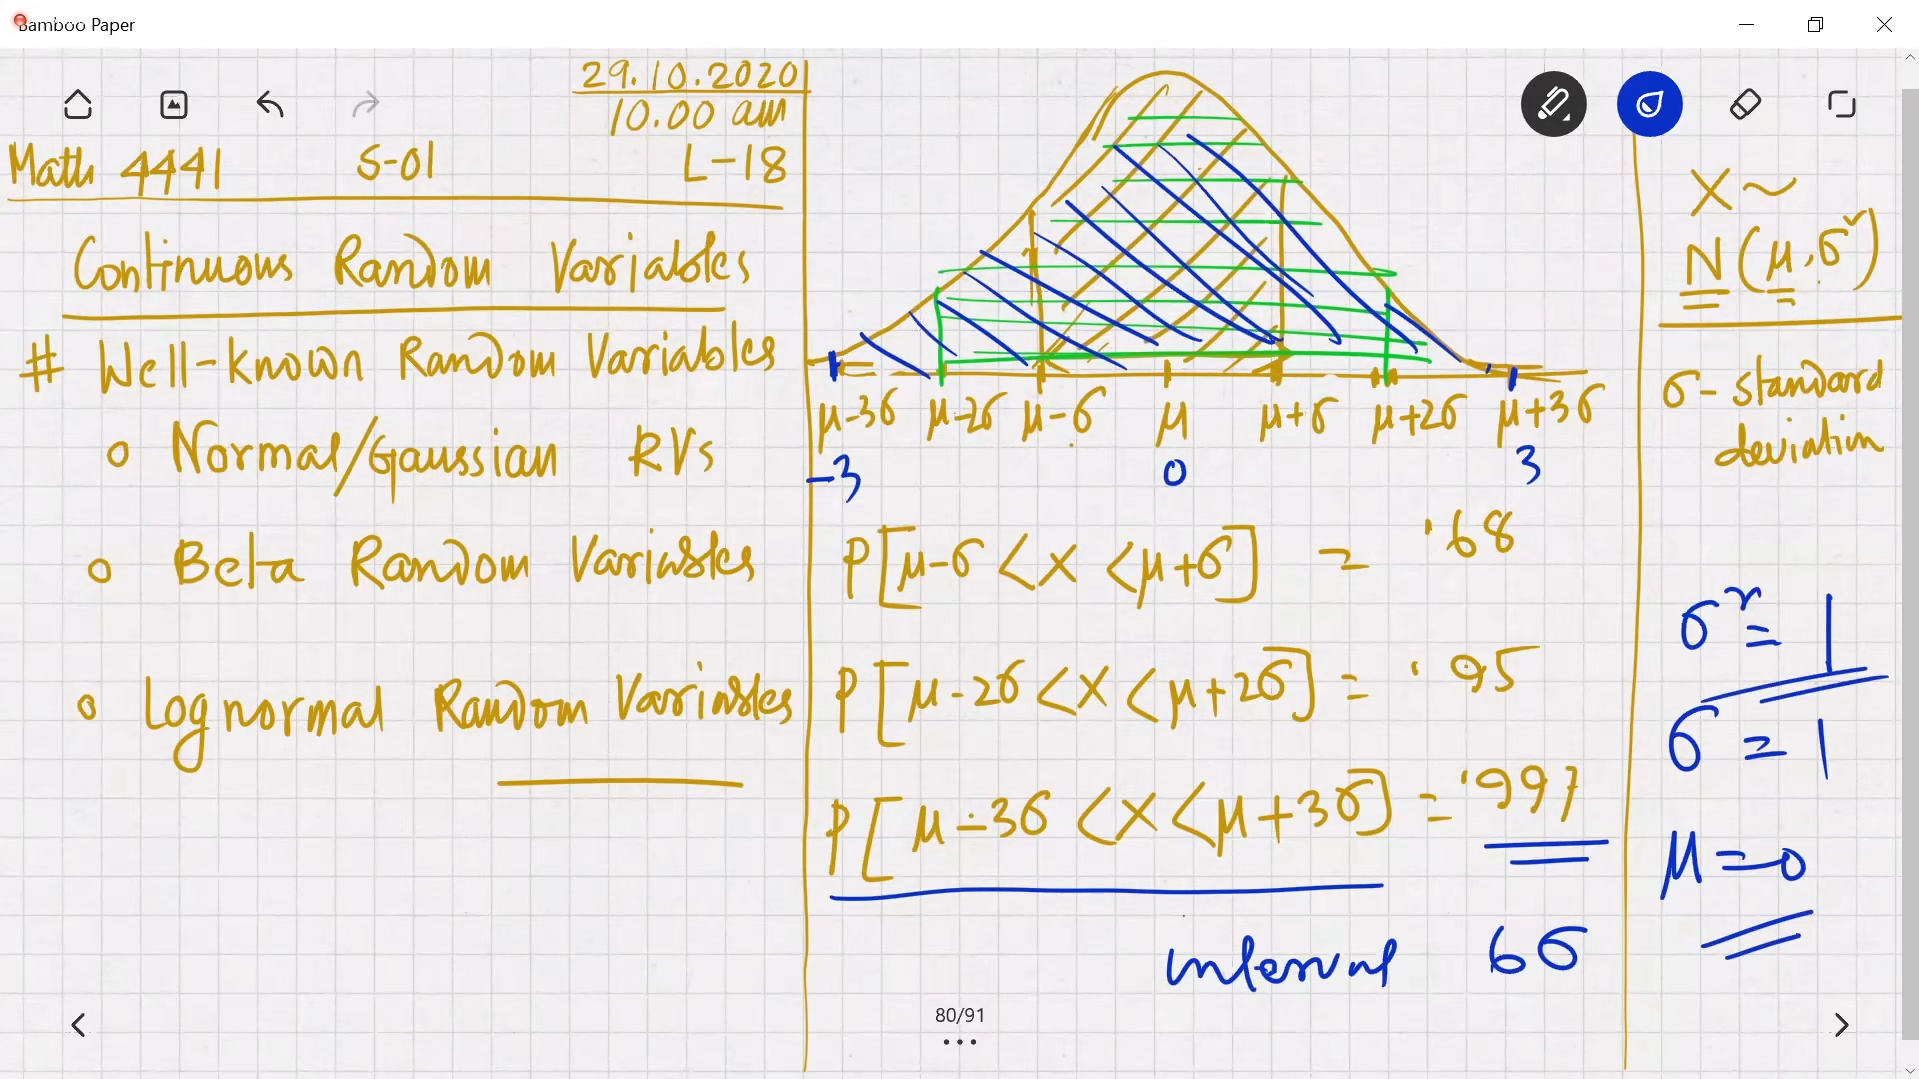 Bamboo Paper
29.10.2020
10.00 am
Math 4441 S-01 L-18
Continuous Random Variables
# Well-known Random Variables
o Normal/Gaussian RVs
o Beta Random Variables
o Lognormal Random Variables
μ-3σ μ-2σ μ-σ μ μ+σ μ+2σ μ+3σ
-3 0 3
P[μ-σ < X < μ+σ] = .68
P[μ-2σ < X < μ+2σ] = .95
P[μ-3σ < X < μ+3σ] = .997
interval 6σ
X ~
N(μ, σ²)
σ - standard
deviation
σ² = 1
σ = 1
μ = 0
80/91